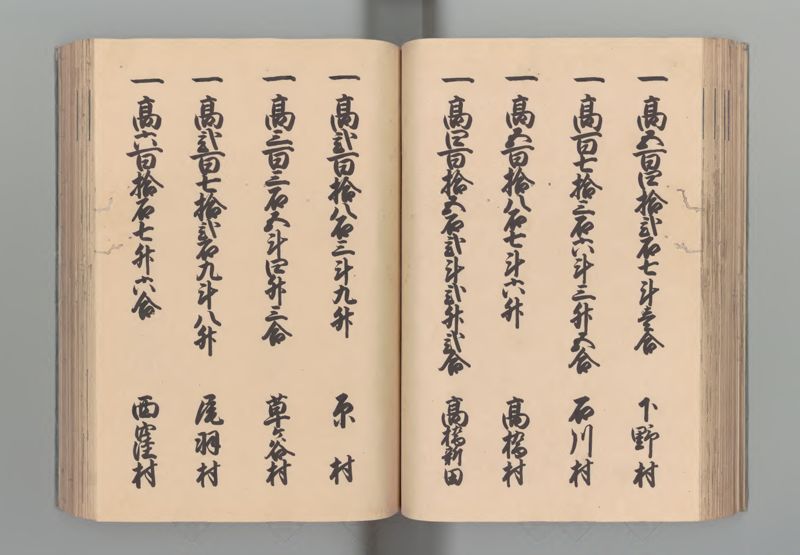 一高五百四拾弐石七斗壱合 下野村
一高百七拾三石六斗三升五合 石川村
一高五百拾八石七斗六升 高橋村
一高四百拾五石弐斗弐升弐合 高橋新田
一高弐百拾八石三斗九升 原村
一高三百三石五斗四升三合 草ヶ谷村
一高弐百七拾弐石九斗八升 尾羽村
一高六百拾石七升六合 西窪村